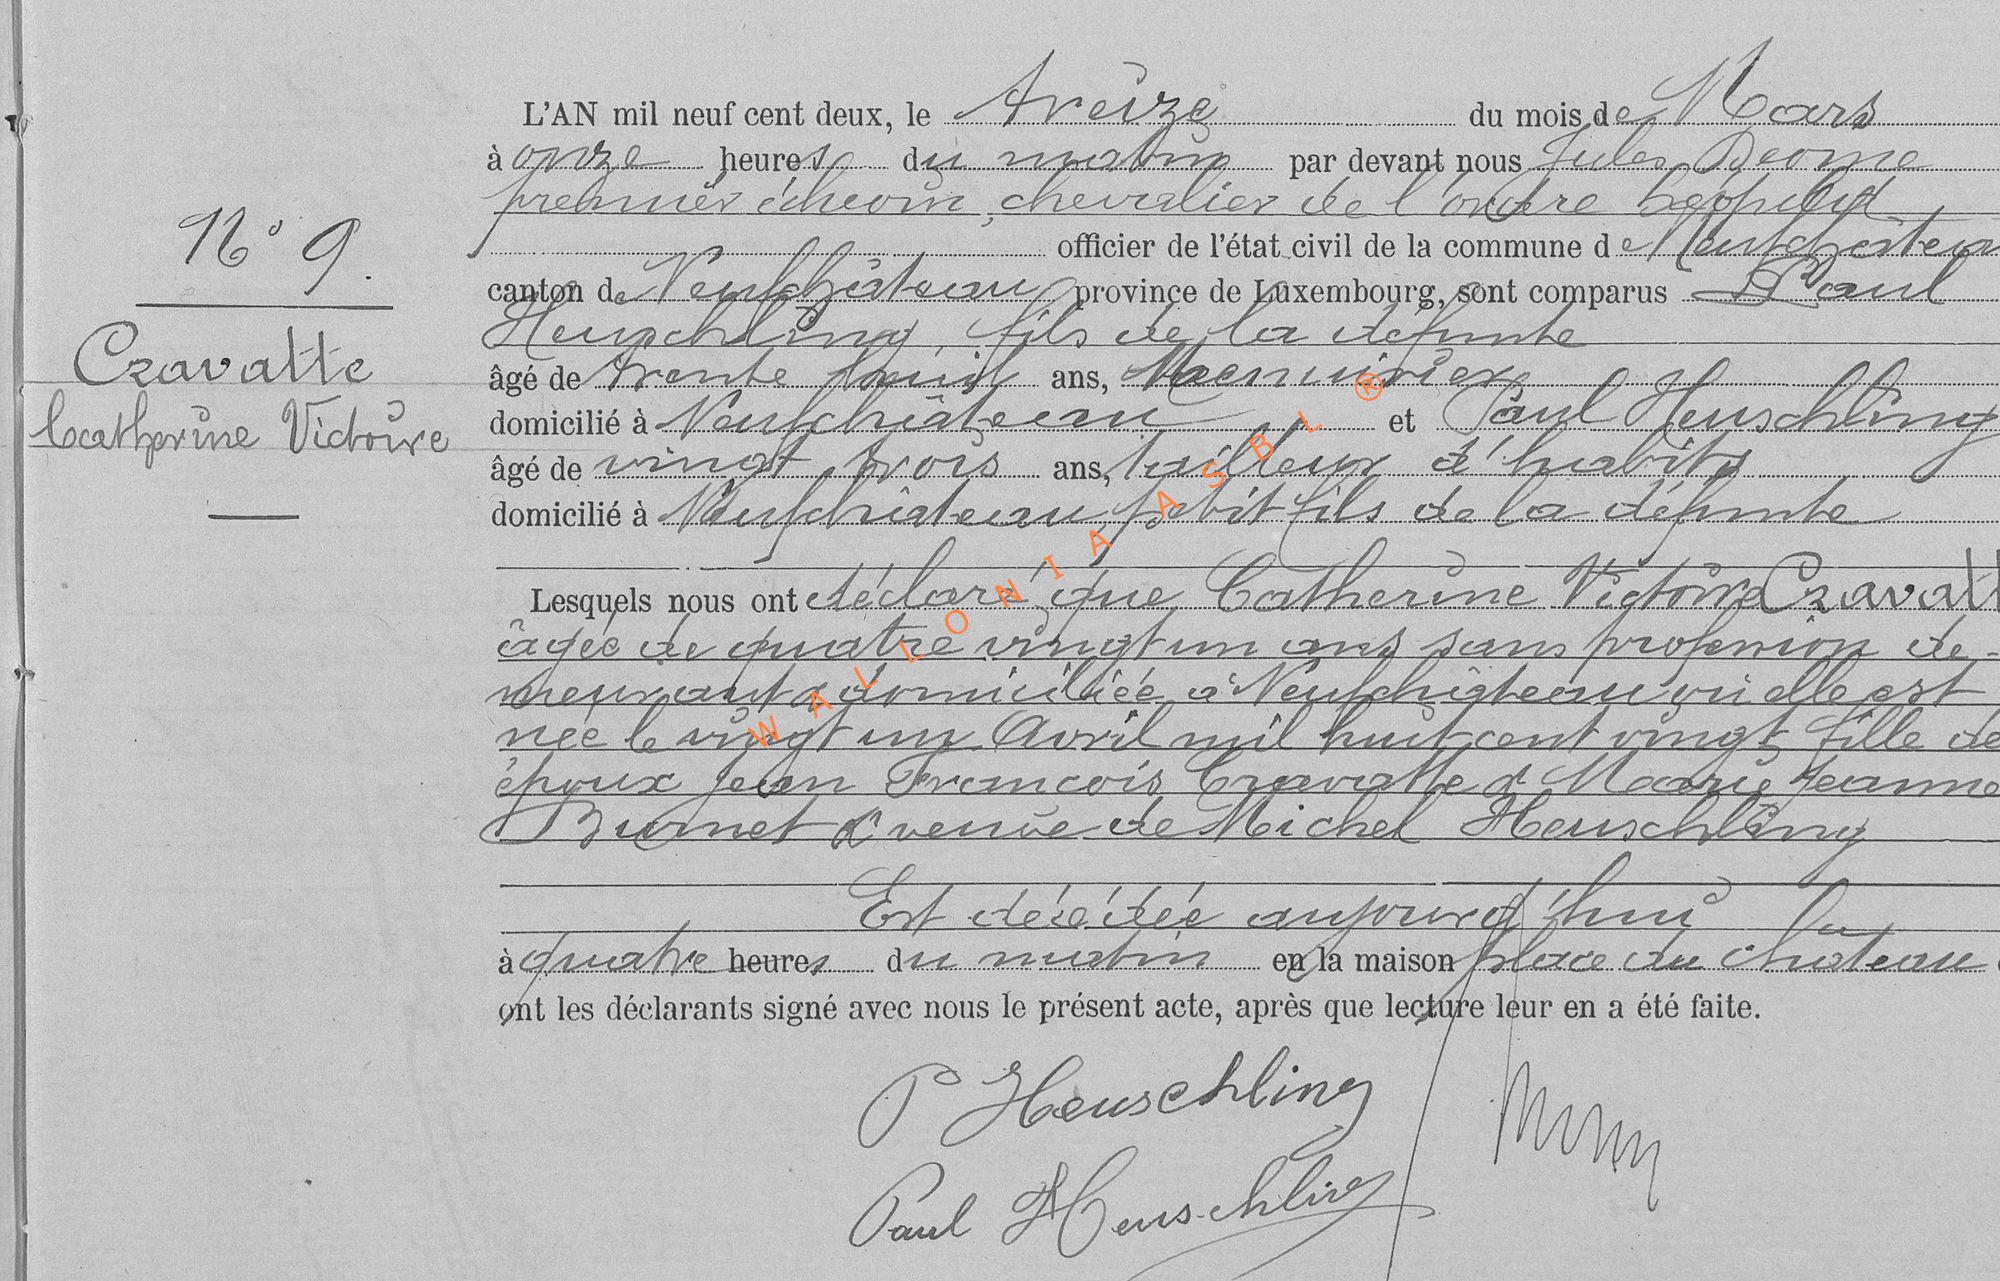 N° 9.
Czavatte
Catherine Victoire
L'AN mil neuf cent deux, le treize du mois de Mars
à onze heures du matin par devant nous Jules
premier échevin, chevalier de l'ordre Léopold
officier de l'état civil de la commune de Neufchâteau
canton de Neufchâteau province de Luxembourg, sont comparus Paul
Heuschling, fils de la défunte
âgé de trente huit ans, Menuisier
domicilié à Neufchâteau et Paul Heuschling
âgé de vingt trois ans, tailleur d'habits
domicilié à Neufchâteau petit fils de la défunte
Lesquels nous ont déclaré que Catherine Victoire Czavatt
âgée de quatre vingt un ans sans profession de-
meurant & domiciliée à Neufchâteau où elle est
née le vingt un Avril mil huit cent vingt, fille de
époux Jean François Czavatte & Marie Jeanne
Burnet & veuve de Michel Heuschling
Est décédée aujourd'hui
à quatre heures du matin en la maison place du château
ont les déclarants signé avec nous le présent acte, après que lecture leur en a été faite.
P Heuschling
Paul Heuschling
WALLONIA ASBL ®